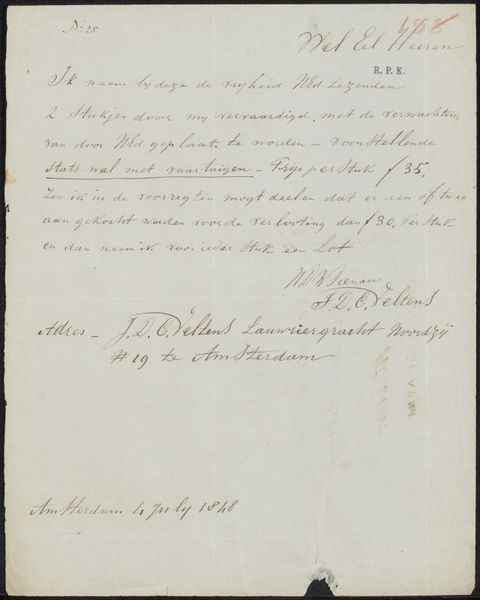 No. 25
488
Wel Eel Heeren
R. P. K.
Ik neem by deze de vryheid WEd te zenden
2 Stukjes door my vervaardigd, met de verwachting
van door WEd geplaatst te worden - voorstellende
Stats wal met vaartuigen - Prijs per Stuk f 35,
Zoo ik in de voorregten mogt deelen dat er een of twee
aan gekocht werden voor de verlooting dan f 30, Per Stuk
en dan neem ik voor ieder Stuk een Lot
UEDW Dienaar
J. D. C. Veltens
Adres - J. D. C. Veltens Lauwriergracht Noordzy
# 19 te Amsterdam
Amsterdam 4 July 1848